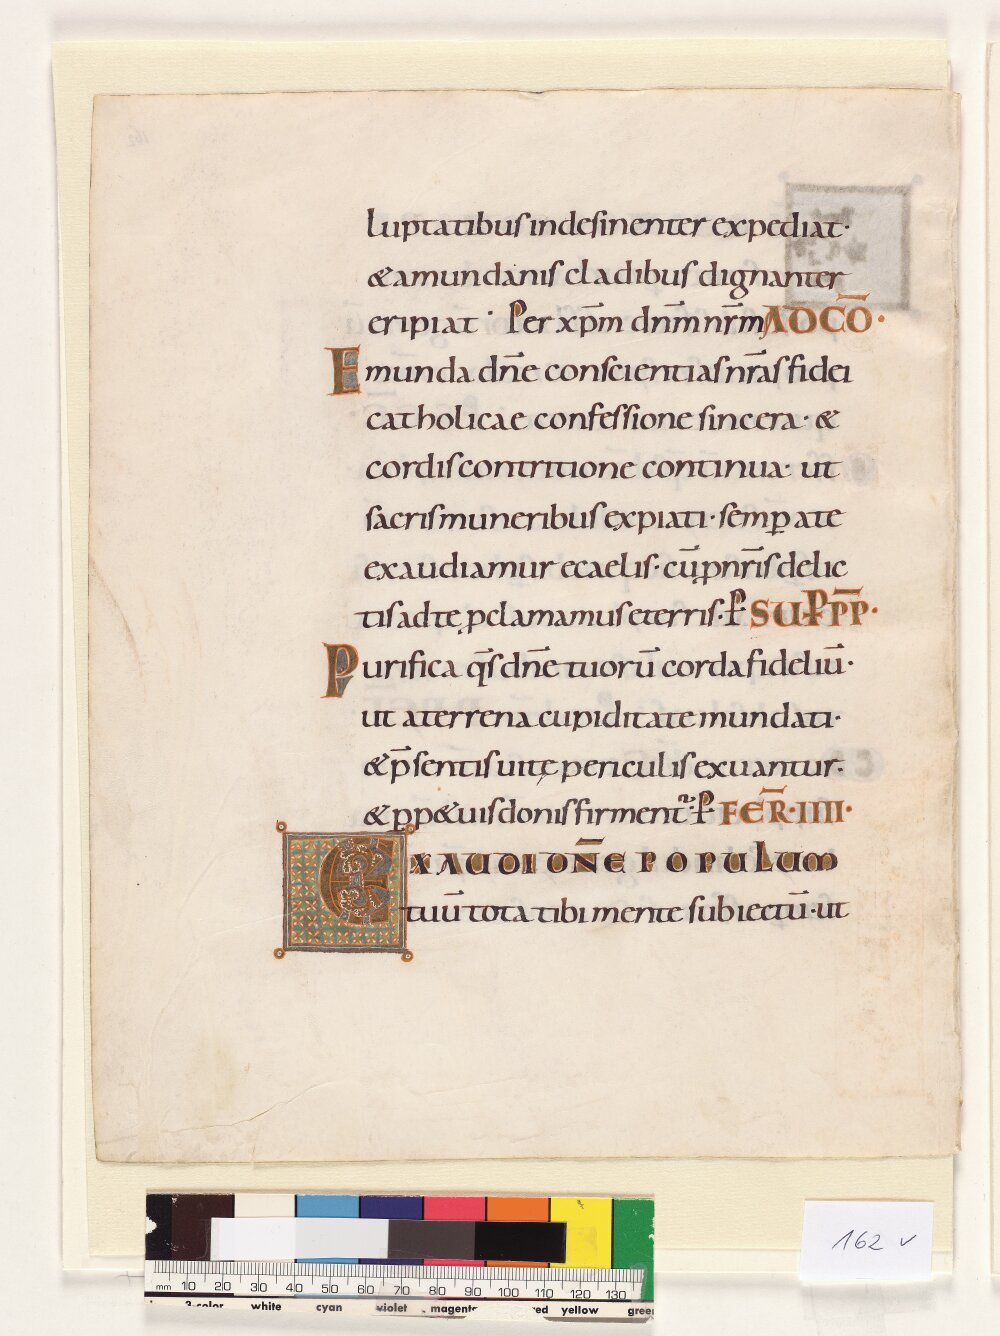 luptatibus indesinenter expediat·
& a mundanis cladibus dignanter
eripiat· Per xp̄m dn̄m nr̄m AD CŌ·
Emunda dn̄e conscientias nr̄as fidei
catholicae confessione sincera· &
cordis contritione continua· ut
sacris muneribus expiati· semp̲ a te
exaudiamur e caelis· cū p̲ nr̄is delic
tis ad te p̲clamamus e terris· P̲ SUP̲ P̄P̄·
Purifica q̄s dn̄e tuorū corda fideliū·
ut a terrena cupiditate mundati·
& p̄sentis uitę periculis exuantur·
& p̲p&uis donis firment᷑· P̲ FER̄· IIII·
EXAUDI DN̄E POPULUM
tuū tota tibi mente subiectū· ut
162 v
mm 10 20 30 40 50 60 70 80 90 100 110 120 130
3-color white cyan violet magenta red yellow green